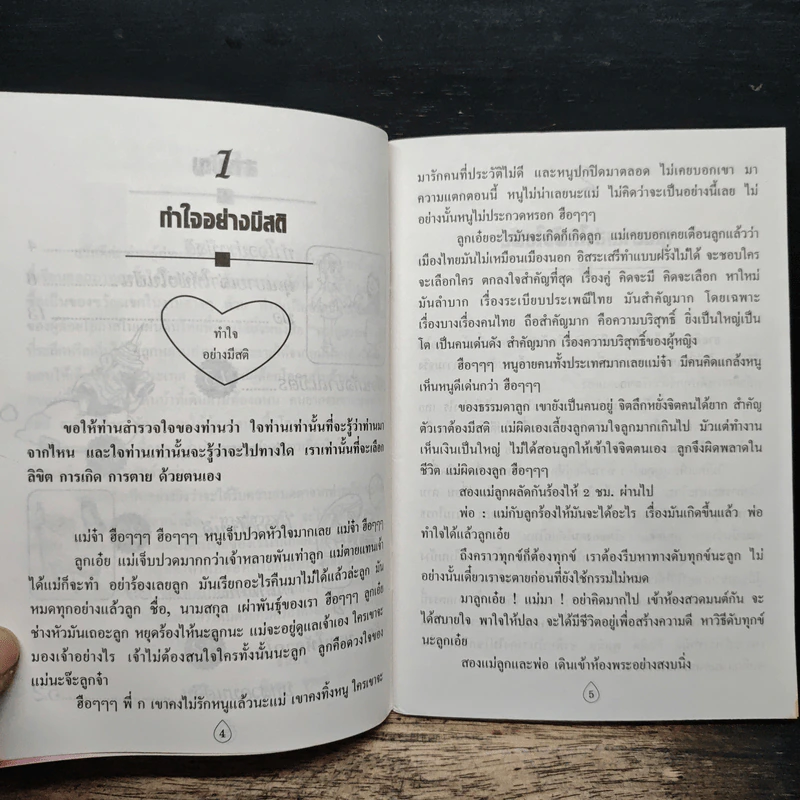 1
ทำใจอย่างมีสติ
ทำใจ
อย่างมีสติ
ขอให้ท่านสำรวจใจของท่านว่า ใจท่านเท่านั้นที่จะรู้ว่าท่านมา
จากไหน และใจท่านเท่านั้นจะรู้ว่าจะไปทางใด เราเท่านั้นที่จะเลือก
ลิขิต การเกิด การตาย ด้วยตนเอง
แม่จ๋า ฮือๆๆๆ ฮือๆๆๆ หนูเจ็บปวดหัวใจมากเลย แม่จ๋า ฮือๆๆๆ
ลูกเอ๋ย แม่เจ็บปวดมากกว่าเจ้าหลายพันเท่าลูก แม่ตายแทนเจ้า
ได้แม่ก็จะทำ อย่าร้องเลยลูก มันเรียกอะไรคืนมาไม่ได้แล้วล่ะลูก มัน
หมดทุกอย่างแล้วลูก ชื่อ, นามสกุล เผ่าพันธุ์ของเรา ฮือๆๆๆ ลูกเอ๋ย
ช่างหัวมันเถอะลูก หยุดร้องไห้นะลูกนะ แม่จะอยู่ดูแลเจ้าเอง ใครเขาจะ
มองเจ้าอย่างไร เจ้าไม่ต้องสนใจใครทั้งนั้นนะลูก ลูกคือดวงใจของ
แม่นะจ๊ะลูกจ๋า
ฮือๆๆๆ พี่ ก เขาคงไม่รักหนูแล้วนะแม่ เขาคงทิ้งหนู ใครเขาจะ
4
มารักคนที่ประวัติไม่ดี และหนูปกปิดมาตลอด ไม่เคยบอกเขา มา
ความแตกตอนนี้ หนูไม่น่าเลยนะแม่ ไม่คิดว่าจะเป็นอย่างนี้เลย ไม่
อย่างนั้นหนูไม่ประกวดหรอก ฮือๆๆๆ
ลูกเอ๋ยอะไรมันจะเกิดก็เกิดลูก แม่เคยบอกเคยเตือนลูกแล้วว่า
เมืองไทยมันไม่เหมือนเมืองนอก อิสระเสรีทำแบบฝรั่งไม่ได้ จะชอบใคร
จะเลือกใคร ตกลงใจสำคัญที่สุด เรื่องคู่ คิดจะมี คิดจะเลือก หาใหม่
มันลำบาก เรื่องระเบียบประเพณีไทย มันสำคัญมาก โดยเฉพาะ
เรื่องบางเรื่องคนไทย ถือสำคัญมาก คือความบริสุทธิ์ ยิ่งเป็นใหญ่เป็น
โต เป็นคนเด่นดัง สำคัญมาก เรื่องความบริสุทธิ์ของผู้หญิง
ฮือๆๆๆ หนูอายคนทั้งประเทศมากเลยแม่จ๋า มีคนคิดแกล้งหนู
เห็นหนูดีเด่นกว่า ฮือๆๆๆ
ของธรรมดาลูก เขายังเป็นคนอยู่ จิตลึกหยั่งจิตคนได้ยาก สำคัญ
ตัวเราต้องมีสติ แม่ผิดเองเลี้ยงลูกตามใจลูกมากเกินไป มัวแต่ทำงาน
เห็นเงินเป็นใหญ่ ไม่ได้สอนลูกให้เข้าใจจิตตนเอง ลูกจึงผิดพลาดใน
ชีวิต แม่ผิดเองลูก ฮือๆๆๆ
สองแม่ลูกผลัดกันร้องไห้ 2 ชม. ผ่านไป
พ่อ : แม่กับลูกร้องไห้มันจะได้อะไร เรื่องมันเกิดขึ้นแล้ว พ่อ
ทำใจได้แล้วลูกเอ๋ย
ถึงคราวทุกข์ก็ต้องทุกข์ เราต้องรีบหาทางดับทุกข์นะลูก ไม่
อย่างนั้นเดี๋ยวเราจะตายก่อนที่ยังใช้กรรมไม่หมด
มาลูกเอ๋ย ! แม่มา ! อย่าคิดมากไป เข้าห้องสวดมนต์กัน จะ
ได้สบายใจ พาใจให้ปลง จะได้มีชีวิตอยู่เพื่อสร้างความดี หาวิธีดับทุกข์
นะลูกเอ๋ย
สองแม่ลูกและพ่อ เดินเข้าห้องพระอย่างสงบนิ่ง
5